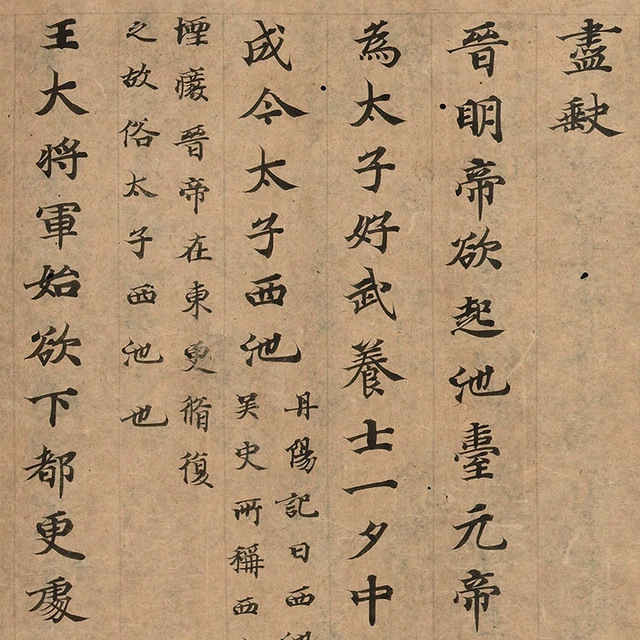 盡缺
晉明帝欲起池臺元帝
為太子好武養士一夕中
成今太子西池
丹陽記曰西
吳史所稱西
堙癈晉帝在東更脩復
之故俗太子西池也
王大將軍始欲下都更處